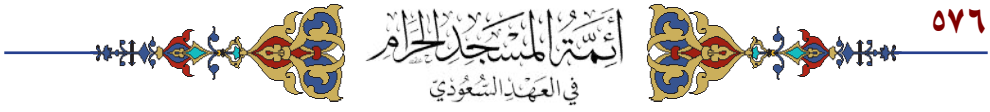 ٥٧٦
أئمة المسجد الحرام
في العهد السعودي